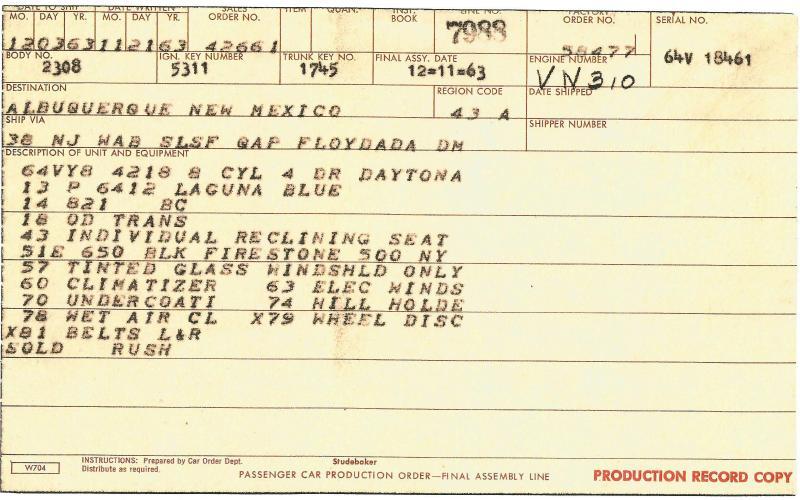 DATE TO SHIP DATE WRITTEN SALES ITEM QUAN. INST. LINE NO. FACTORY
MO. DAY YR. MO. DAY YR. ORDER NO. BOOK 7988 ORDER NO. SERIAL NO.
120363112163 42661 58477 64V 18461
BODY NO. IGN. KEY NUMBER TRUNK KEY NO. FINAL ASSY. DATE ENGINE NUMBER
2308 5311 1745 12=11=63 VN310
DESTINATION REGION CODE DATE SHIPPED
ALBUQUERQUE NEW MEXICO 43 A
SHIP VIA SHIPPER NUMBER
38 NJ WAB SLSF QAP FLOYDADA DM
DESCRIPTION OF UNIT AND EQUIPMENT
64VY8 4218 8 CYL 4 DR DAYTONA
13 P 6412 LAGUNA BLUE
14 821 BC
18 OD TRANS
43 INDIVIDUAL RECLINING SEAT
51E 650 BLK FIRESTONE 500 NY
57 TINTED GLASS WINDSHLD ONLY
60 CLIMATIZER 63 ELEC WINDS
70 UNDERCOATI 74 HILL HOLDE
78 WET AIR CL X79 WHEEL DISC
X81 BELTS L&R
SOLD RUSH
W704
INSTRUCTIONS: Prepared by Car Order Dept.
Distribute as required.
Studebaker
PASSENGER CAR PRODUCTION ORDER—FINAL ASSEMBLY LINE
PRODUCTION RECORD COPY